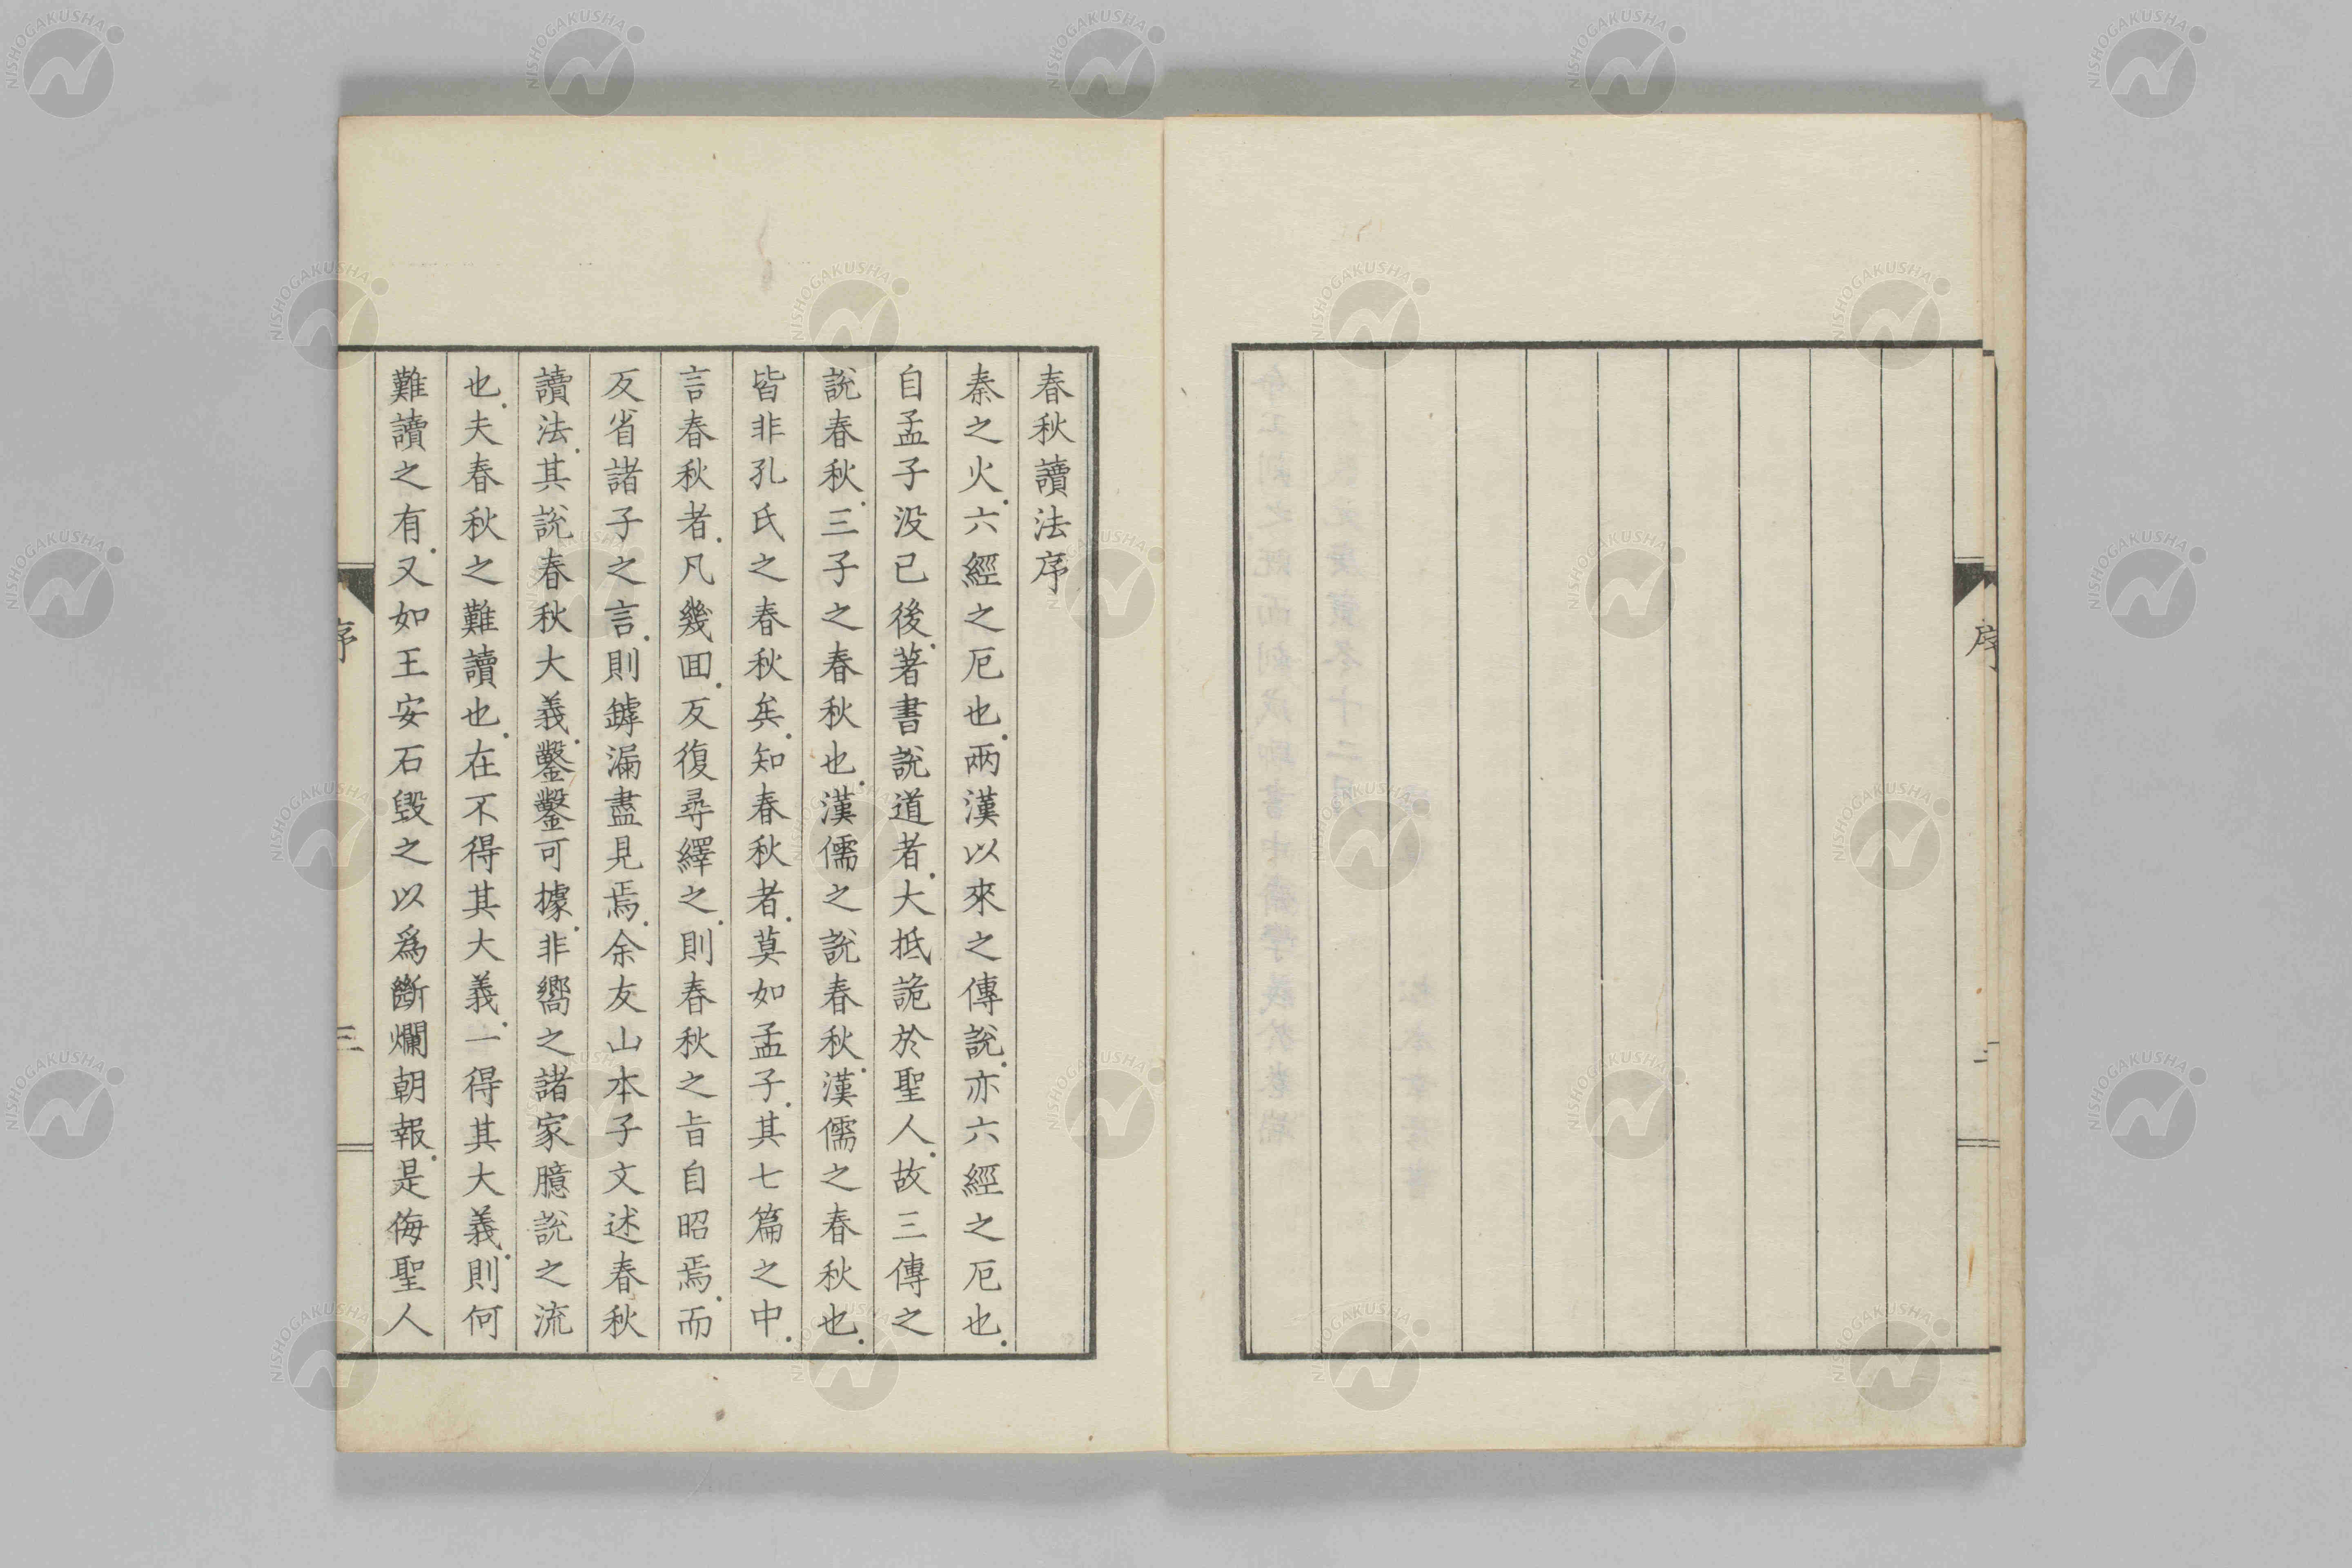 序
二
春秋讀法序
秦之火六經之厄也兩漢以來之傳說亦六經之厄也
自孟子没已後著書說道者大抵詭於聖人故三傳之
說春秋三子之春秋也漢儒之說春秋漢儒之春秋也
皆非孔氏之春秋矣知春秋者莫如孟子其七篇之中
言春秋者凡幾囬反復尋繹之則春秋之旨自昭焉而
反省諸子之言則罅漏盡見焉余友山本子文述春秋
讀法其說春秋大義鑿鑿可據非嚮之諸家臆說之流
也夫春秋之難讀也在不得其大義一得其大義則何
難讀之有又如王安石毀之以爲斷爛朝報是侮聖人
序
三
NISHOGAKUSHA